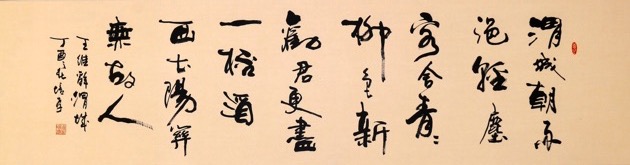 渭城朝雨
浥輕塵
客舍青々
柳色新
勸君更盡
一杯酒
西出陽關
無故人
王維 渭城
丁酉